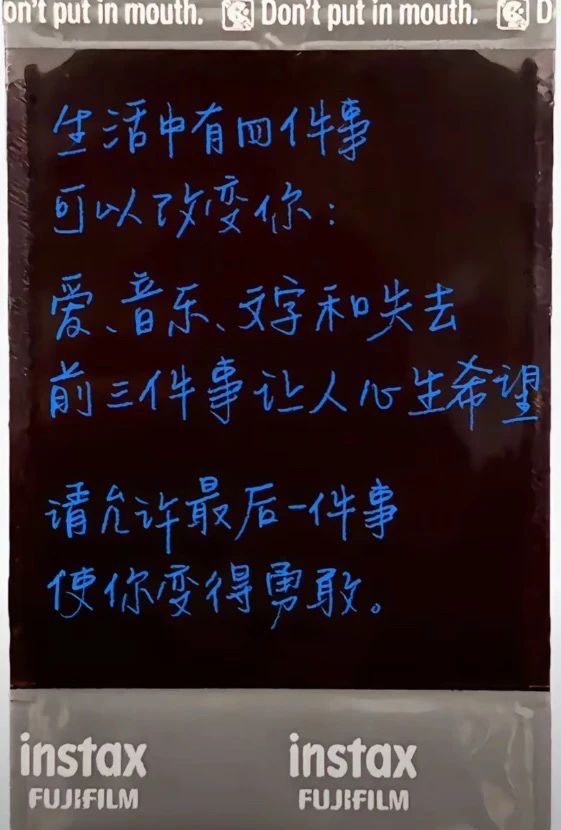 on't put in mouth. Don't put in mouth. D
生活中有四件事
可以改变你:
爱、音乐、文字和失去
前三件事让人心生希望
请允许最后一件事
使你变得勇敢。
instax instax
FUJIFILM FUJIFILM